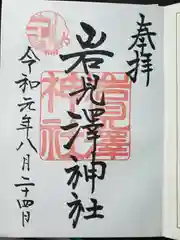 奉拝
岩見澤神社
岩見澤
神社
令和元年八月二十四日